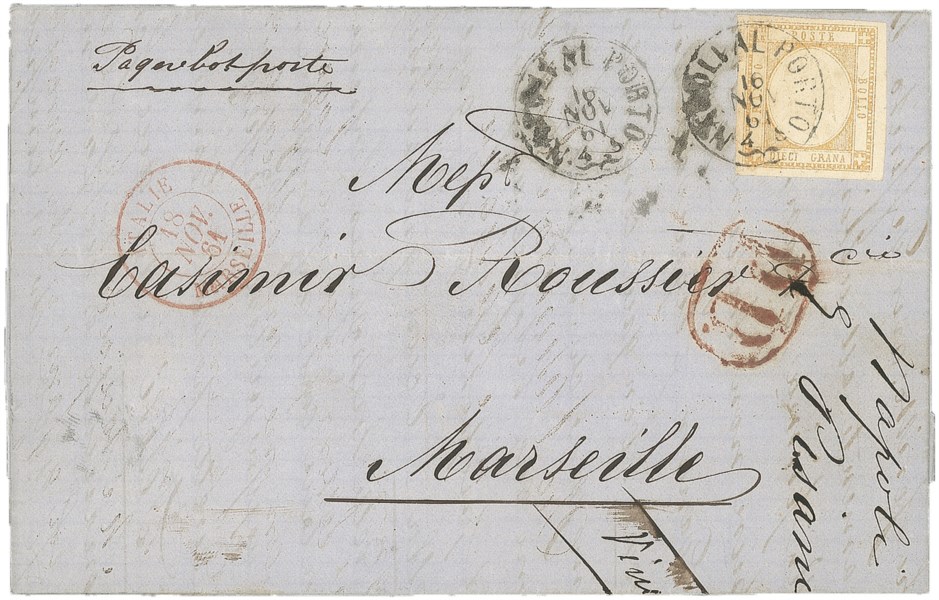 Paquebot poste
NAPOLI AL PORTO
16
NOV
61
4
NAPOLI AL PORTO
16
NOV
61
4
POSTE
BOLLO
DIECI GRANA
Mess.
ITALIE
18
NOV.
61
MARSEILLE
Casimir Roussier & Cie
P.D.
Marseille
Napoli
Pisani